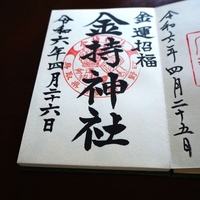 令和六年四月二十五日
金運招福
金持神社
令和六年四月二十六日